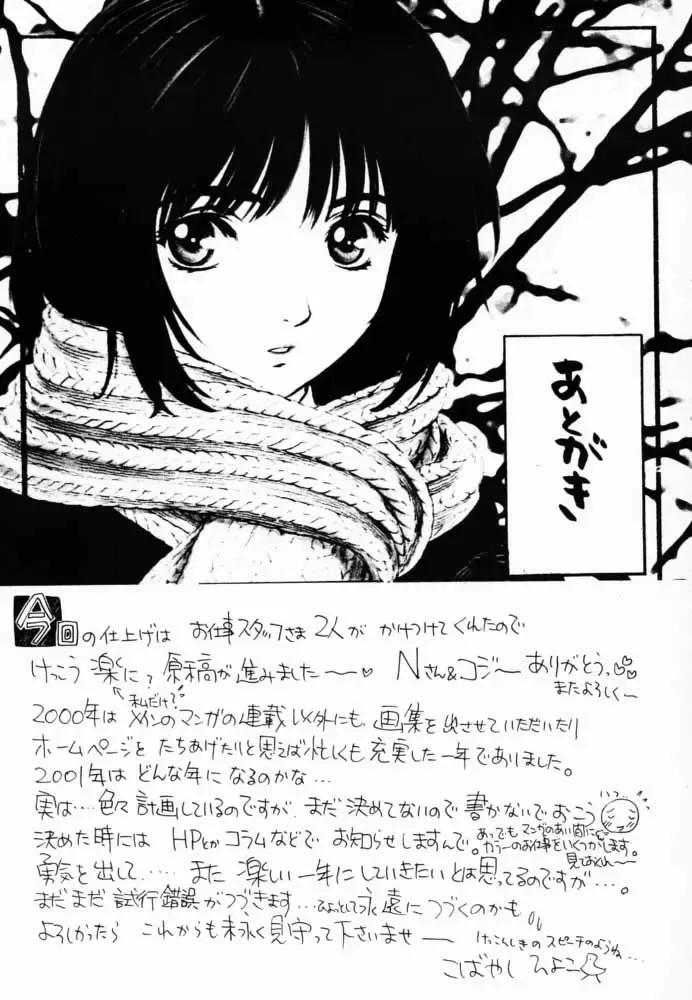 あとがき
今回の仕上げは お仕事スタッフさま2人が かけつけてくれたので
けっこう楽に?原稿が進みました〜〜♥ Nさん&コジー ありがとう♥
私だけ?
またよろしく〜
2000年は メインのマンガの連載以外にも、画集を出させていただいたり
ホームページを たちあげたりと思えば忙しくも充実した一年でありました。
2001年は どんな年に なるのかな…
実は…色々計画しているのですが、まだ決めてないので書かないでおこう
決めた時には HPとかコラムなどで お知らせしますんで。
あってもマンガのあい間に
カラーのお仕事をいくつかします。
見てね〜〜
勇気を出して…… また 楽しい一年にしていきたいとは思ってるのですが…。
まだまだ試行錯誤がつづきます… ひょっとして永遠につづくのかも
よろしかったら これからも末永く見守って下さいませ ー
けっこんしきの スピーチのようね…
こばやし ひよこ